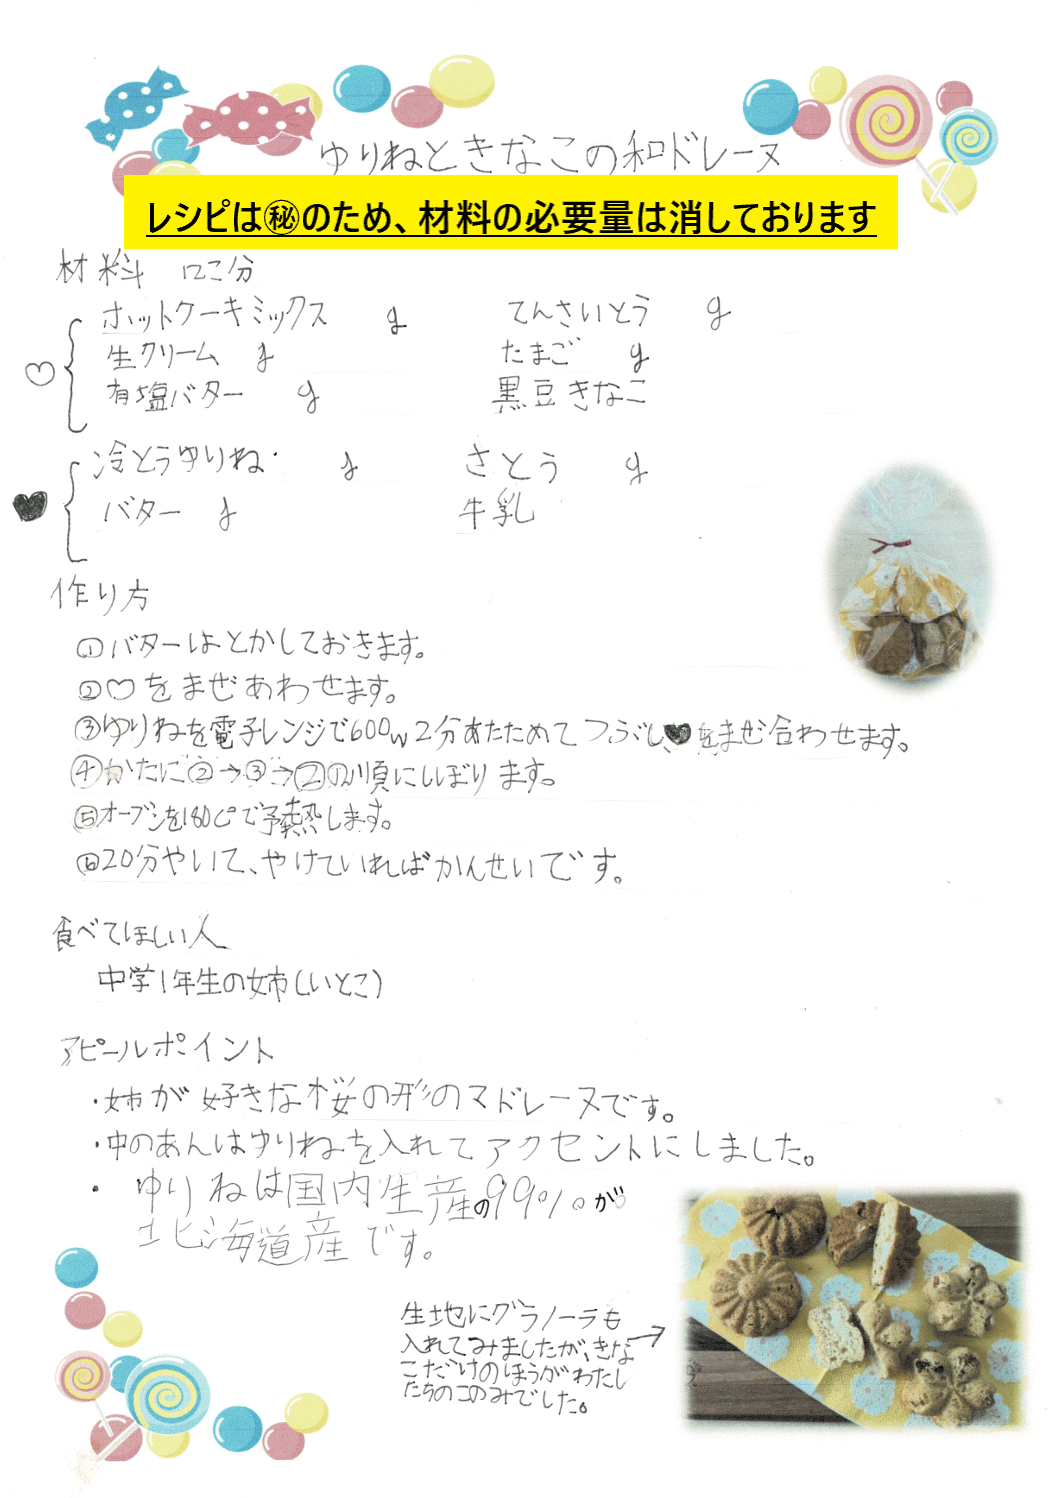 ゆりねときなこの和ドレーヌ
レシピは㊙のため、材料の必要量は消しております
材料 12こ分
ホットケーキミックス g てんさいとう g
生クリーム g たまご g
有塩バター g 黒豆きなこ
冷とうゆりね g さとう g
バター g 牛乳
作り方
①バターはとかしておきます。
②♡をまぜあわせます。
③ゆりねを電子レンジで600w2分あたためてつぶし、♥をまぜ合わせます。
④かたに②→③→②の順にしぼります。
⑤オーブンを180℃で予熱します。
⑥20分やいて、やけていればかんせいです。
食べてほしい人
中学1年生の姉(いとこ)
アピールポイント
・姉が好きな桜の形のマドレーヌです。
・中のあんはゆりねを入れてアクセントにしました。
・ゆりねは国内生産の99%が
北海道産です。
生地にグラノーラも
入れてみましたが、きな
こだけのほうがわたし
たちのこのみでした。